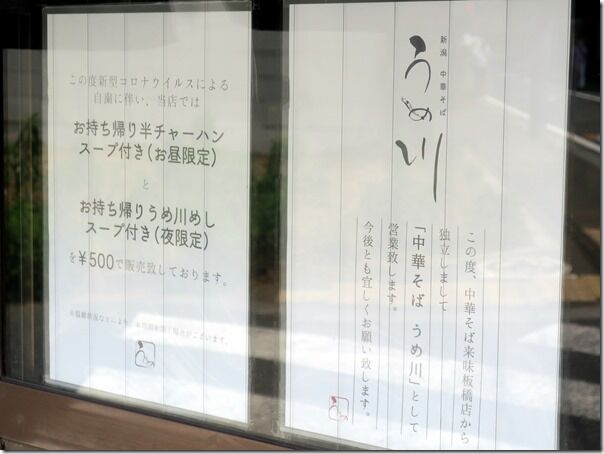 この度新型コロナウイルスによる
自粛に伴い、当店では
お持ち帰り半チャーハン
スープ付き(お昼限定)
と
お持ち帰りうめ川めし
スープ付き(夜限定)
を¥500で販売致しております。
新潟 中華そば
うめ川
この度、中華そば来味板橋店から
独立しまして
「中華そば うめ川」として
営業致します。
今後とも宜しくお願い致します。